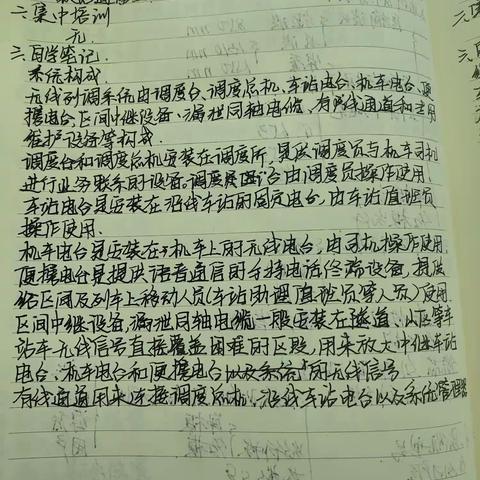 二、集中培训
无
三、自学笔记.
系统构成
无线列调系统由调度台、调度总机、车站电台、机车电台、便
携电台、区间中继设备、漏泄同轴电缆、有/无线通道和专用
维护设备等构成.
调度台和调度总机安装在调度所,是供调度员与机车司机
进行业务联系的设备.调度台由调度员操作使用
车站电台是安装在沿线车站的固定电台,由车站值班员
操作使用.
机车电台是安装在机车上的无线电台,由司机操作使用.
便携电台是提供语音通信的手持电话终端设备,提供
给区间及列车上移动人员(车站助理值班员等人员)使用.
区间中继设备,漏泄同轴电缆一般安装在隧道、山区等车
站车无线信号直接覆盖困难的区段,用来放大中继车站
电台、机车电台和便携电台以及系统的无线信号
有线通道用来连接调度总机、沿线车站电台以及系统管理器